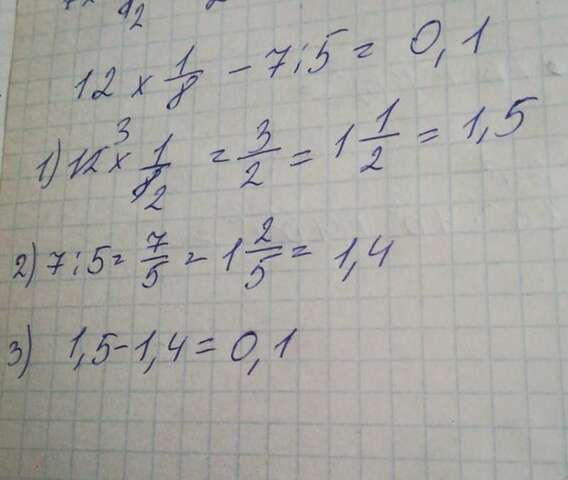 12 × 1/8 - 7:5 = 0,1
1) 12 3 × 1/8 2 = 3/2 = 1 1/2 = 1,5
2) 7:5 = 7/5 = 1 2/5 = 1,4
3) 1,5 - 1,4 = 0,1